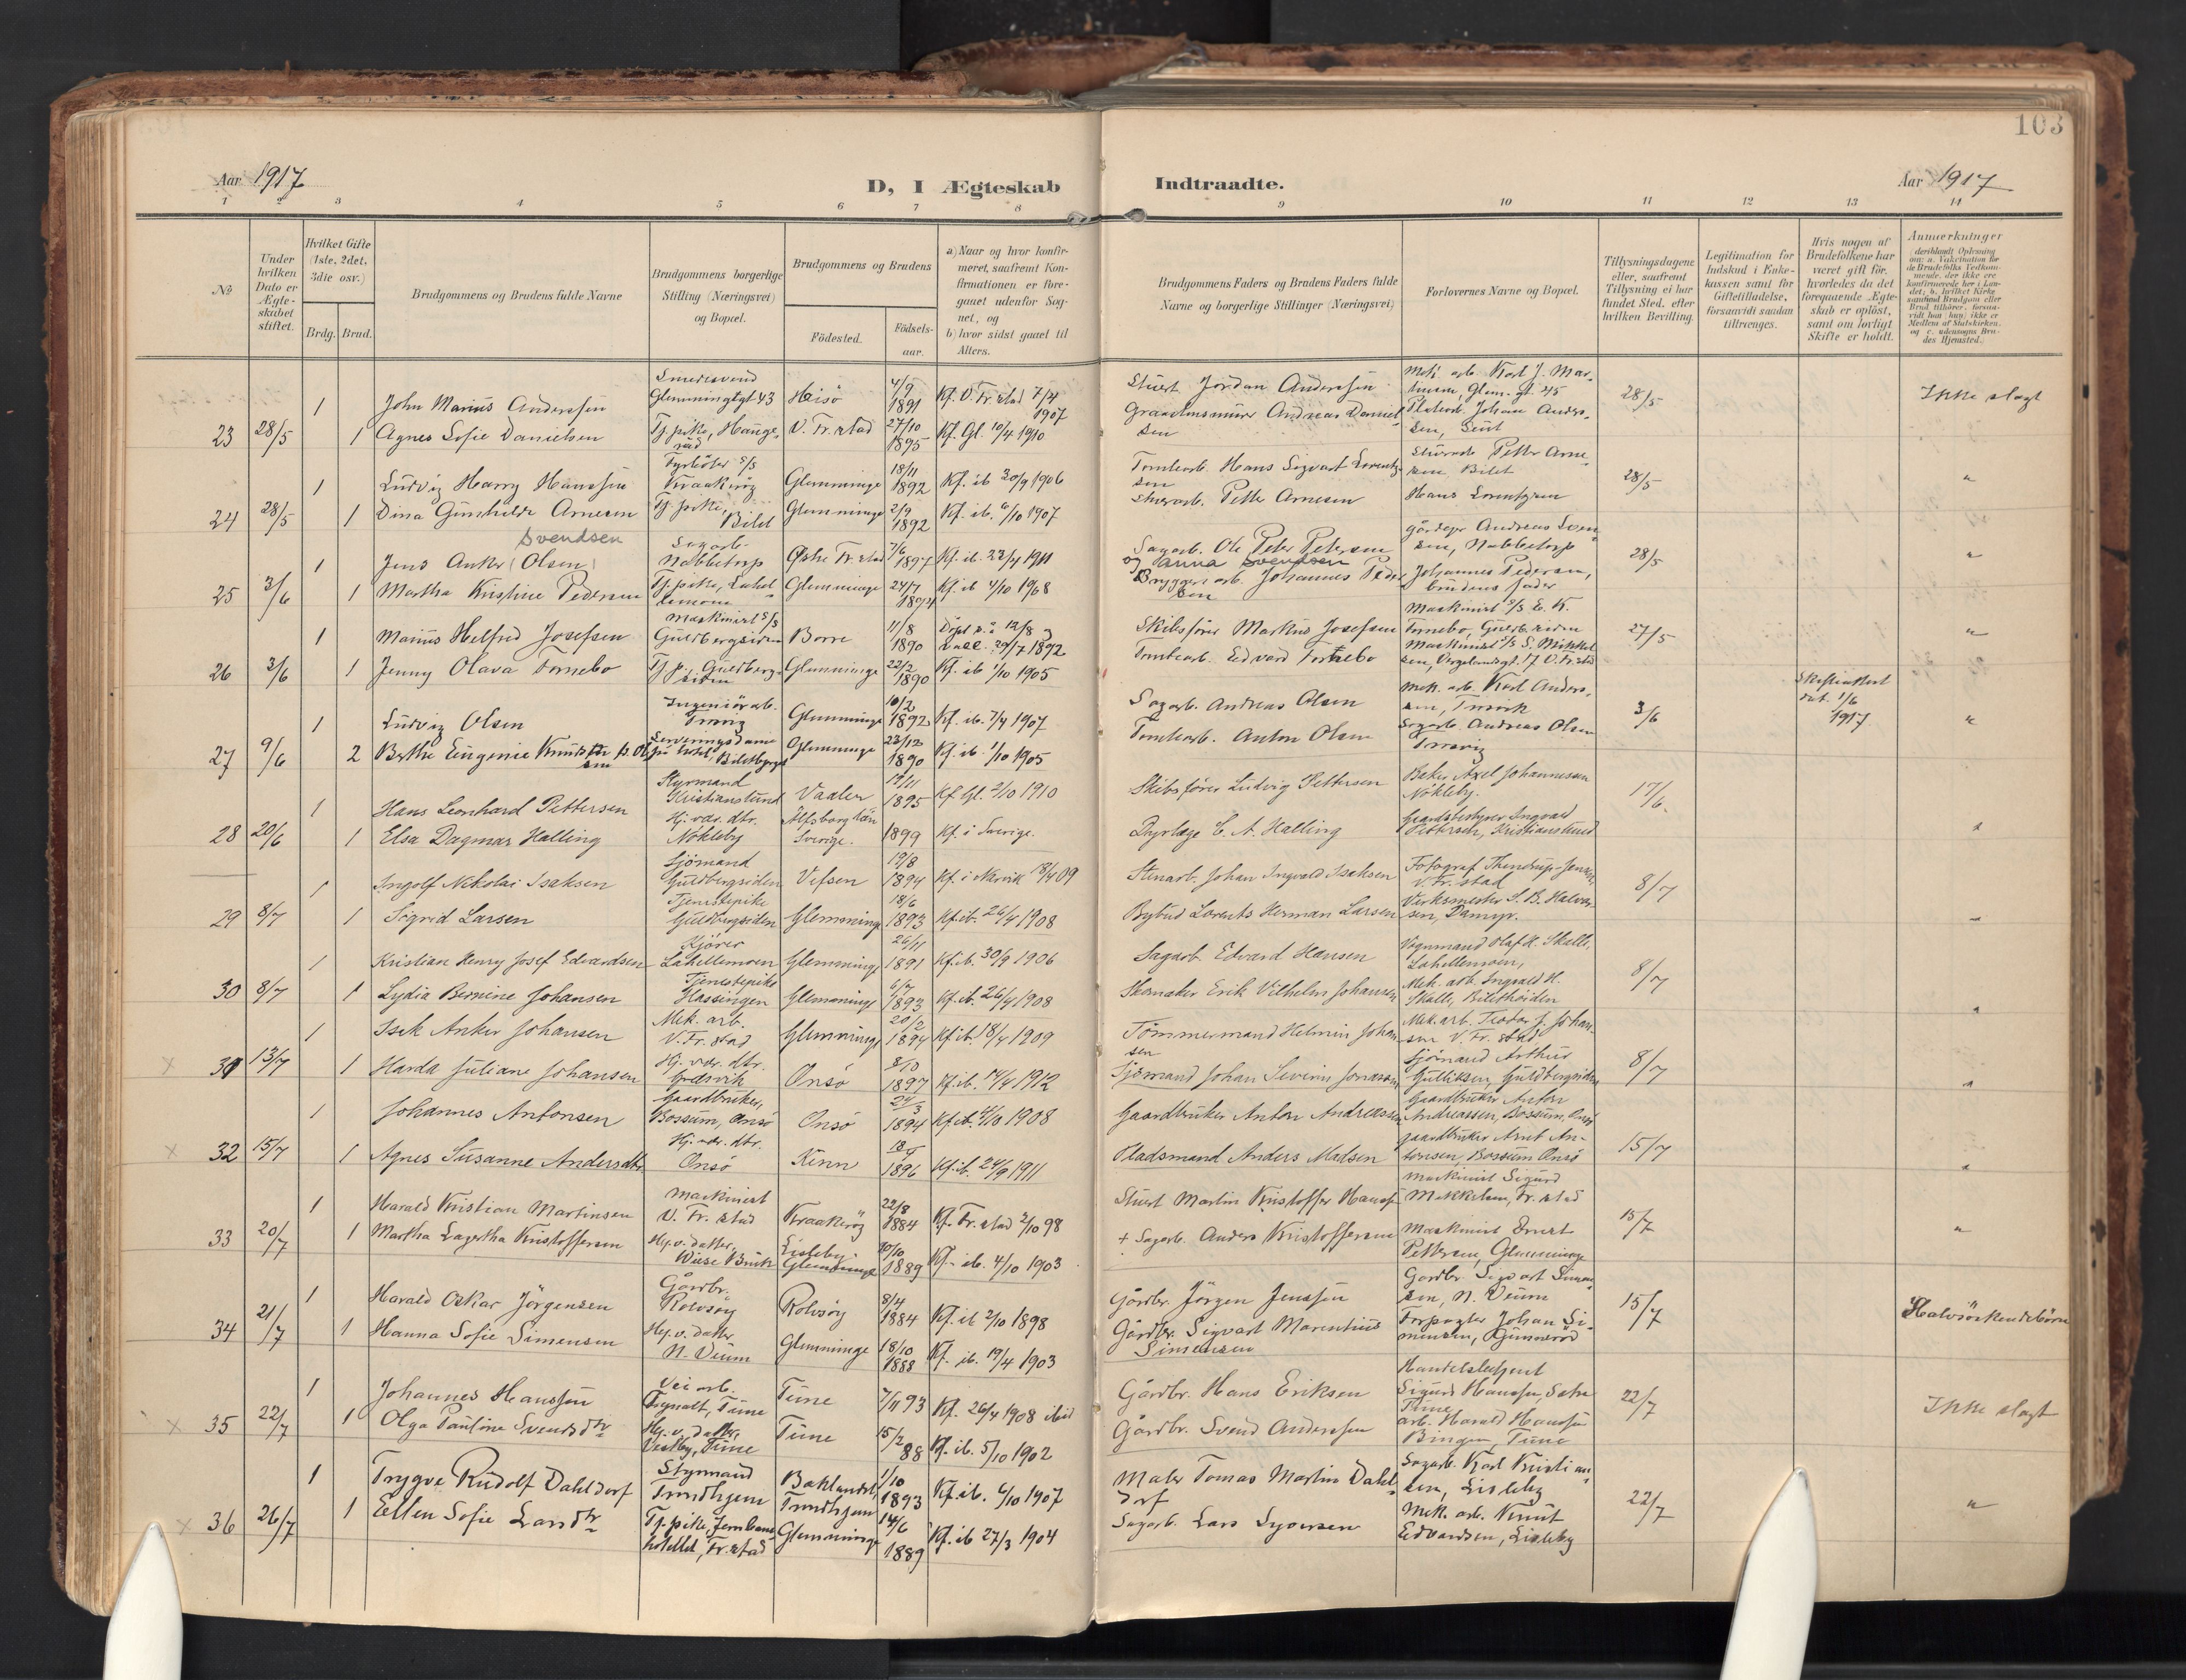 103
Aar 1917
D, I Ægteskab Indtraadte.
Aar 1917
1 2 3 4 5 6 7 8 9 10 11 12 13 14
No
Under hvilken Dato er Ægteskabet stiftet.
Hvilket Gifte (1ste, 2det, 3die osv.)
Brdg. Brud.
Brudgommens og Brudens fulde Navne
Brudgommens borgerlige Stilling (Næringsvei) og Bopæl.
Brudgommens og Brudens
Födested.
Födsels-aar.
a) Naar og hvor konfirmeret, saafremt Konfirmationen er foregaaet udenfor Sognet, og
b) hvor sidst gaaet til Alters.
Brudgommens Faders og Brudens Faders fulde Navne og borgerlige Stillinger (Næringsvei)
Forlovernes Navne og Bopæl.
Tillysningsdagene eller, saafremt Tillysning ei har fundet Sted, efter hvilken Bevilling.
Legitimation for Indskud i Enkekassen samt for Giftetilladelse, forsaavidt saadan tiltrænges.
Hvis nogen af Brudefolkene har været gift för, hvorledes da det foregaaende Ægteskab er oplöst, samt om lovligt Skifte er holdt.
Anmerkninger
23 28/5
1 John Marius Anderssen Smedesvend Glemmingegt 43 Heisö 4/9 1891 Kf. V. Fr.stad 7/4 1907 Stuert Jördan Anderssen Mek. arb. Karl J. Martinsen, Glem. gt. 45 28/5 Ikke slegt
1 Agnes Sofie Danielsen Tj. pike, Haugeråd V. Fr.stad 27/10 1895 Kf. Gl. 10/4 1910 Andreas Danielsen Johan Andersen,
24 28/5
1 Ludvig Harry Hanssen Fyrböter S/S Kraakeröy Glemminge 18/11 1892 Kf. ib 30/9 1906 Tomtearb. Hans Sigvart Lorentzsen Petter Arnesen Bilet 28/5 "
1 Dina Gunhilde Arnesen Tj. pike, Bilet Glemminge 2/9 1892 Kf. ib. 6/10 1907 Petter Arnesen Hans Lorentzen
Svendsen
25 3/6
1 Jens Anker (Olsen) Sagarb. Nabbetorp Østre Fr.stad 7/6 1897 Kf. ib. 23/4 1911 Sagarb. Ole Peter Petersen og Anna Svendsen Andreas Svensen, Nabbetorp 28/5 "
1 Martha Kristine Pedersen Tj. pike, Lahellemoen Glemminge 24/7 Kf. ib 4/10 1908 Bryggeriarb. Johannes Pedersen Johannes Pedersen, brudens fader
26 3/6
1 Marius Helfred Josefsen Maskinist S/S Guldbergsiden Borre 11/8 1890 Skibsförer Markus Josefsen Maskinist S/S E. K. Tornebo, Guldb.siden 27/5 "
1 Jenny Olava Tornebo Tj. p., Guldbergsiden Glemminge 22/2 1890 Kf. ib 1/10 1905 Tomtearb. Edvard Tornebo Maskinist S/S S. Mikkelsen, 17 V. Fr.stad
27 9/6
1 Ludvig Olsen Glemminge 10/2 1892 Kf. ib. 7/4 1907 Sagarb. Andreas Olsen Mek. arb. Karl Andersen, 3/6 Skifteattest dat. 1/6 1917 "
2 Berthe Eugenie Knudsen Serveringsdame Glemminge 23/12 1890 Kf. ib. 1/10 1905 Tomtearb. Anton Olsen Sagarb. Andreas Olsen
28 20/6
1 Hans Leonhard Pettersen Styrmand Kristianslund Vaaler 17/11 1895 Kf. Gl. 2/10 1910 Skibsförer Ludvig Pettersen Baker Axel Johannesen Nökleby. 17/6.
1 Elsa Dagmar Halling Hj. vær. dtr. Nökleby Älfsborg län Sverige. 1899 Kf. i Sverige. Dyrlæge C. A. Halling Gaardsbestyrer Ingvald Pettersen, Kristianslund "
29 8/7
1 Ingolf Nikolai Isaksen Sjömand Guldbergsiden Vefsen 19/8 1894 Kf. i Narvik 18/4 09 Stenarb. Johan Ingvald Isaksen Fotograf V. Fr.stad 8/7
1 Sigrid Larsen Tjenestepike Guldbergsiden Glemminge 18/6 1893 Kf. ib. 26/4 1908 Bybud Lorents Herman Larsen Verksmester S. B. Halvorsen, Damyr. "
30 8/7
1 Kristian Henry Josef Edvardsen Kjörer Lahellemoen Glemminge 26/11 1891 Kf. ib. 30/9 1906 Sagarb. Edvard Hansen Vognmand Olaf K. Skalle, Lahellemoen, 8/7
1 Lydia Bernine Johansen Tjenestepike Hassingen Glemminge 6/7 1893 Kf. ib. 26/4 1908 Skomaker Erik Vilhelm Johansen Mek. arb. Ingvald H. Skalle, Bilethöiden "
x 31 13/7
1 Isak Anker Johansen Mek. arb. V. Fr.stad Glemminge 20/2 1894 Kf. ib. 18/4 1909 Tömmermand Helmin Johansen Mek. arb. Teodor J. Johansen V. Fr.stad 8/7
1 Harda Juliane Johansen Hj. vær. dtr. Gresvik Onsö 8/10 1897 Kf. ib. 14/4 1912 Sjömand Johan Severin Jonassen Sjömand Arthur Gulliksen, Guldbergsiden "
x 32 15/7
1 Johannes Antonsen Gaardbruker, Bossum, Onsö Onsö 24/3 1894 Kf. ib. 4/10 1908 Gaardbruker Anton Andreassen Gaardbruker Anton Andreassen, Bossum, Onsö 15/7
1 Agnes Susanne Andersdtr. Hj. vær. dtr. Onsö Kinn 1896 Kf. ib. 24/9 1911 Pladsmand Anders Madsen Gaardbruker Arnt Antonsen, Bossum Onsö "
33 20/7
1 Harald Kristian Martinsen Maskinist V. Fr.stad Kraakeröy 22/8 1884 Kf. Fr.stad 2/10 98 Stuert Martin Kristoffer Hanssen Maskinist Sigurd Mikkelsen, Fr.stad 15/7 "
1 Martha Lagertha Kristoffersen Hj. v. datter, Wiese Bruk Lisleby Glemminge 20/10 1889 Kf. ib. 4/10 1903 + Sagarb. Anders Kristoffersen Maskinist Ernst Pettersen, Glemminge
34 21/7
1 Harald Oskar Jörgensen Gårdbr. Rolvsöy Rolvsöy 8/4 1884 Kf. ib 2/10 1898 Gårdbr. Jörgen Jenssen Gardbr. Sigvart Simensen, N. Veum 15/7 Halvsöskendebörn
1 Hanna Sofie Simensen Hj. v. datter. N. Veum Glemminge 18/10 1888 Kf. ib. 19/4 1903 Gårdbr. Sigvart Marentius Simensen Forpagter Johan Simensen, Gunneröd
x 35 22/7
1 Johannes Hanssen Veiarb. Tune Tune 7/11 93 Kf. 26/4 1908 ibid Gårdbr. Hans Eriksen Handelsbetjent Sigurd Hanssen, Tune 22/7 Ikke slegt
1 Olga Pauline Svendsdtr Hj. v. datter, Vestby, Tune Tune 15/2 88 Kf. ib. 5/10 1902 Gårdbr. Svend Anderssen arb. Harald Hanssen Bingen, Tune
x 36 26/7
1 Trygve Rudolf Dahldorf Styrmand Trondhjem Baklandet, Trondhjem 1/10 1893 Kf. ib. 6/10 1907 Maler Tomas Martin Dahldorf Sagarb. Karl Kristiansen, Lisleby 22/7 "
1 Ellen Sofie Larsdtr Tj. pike, Jernbanehotellet, Fr.stad Glemminge 14/6 1889 Kf. ib 27/3 1904 Sagarb. Lars Syversen Mek. arb. Knut Edvardsen, Lisleby